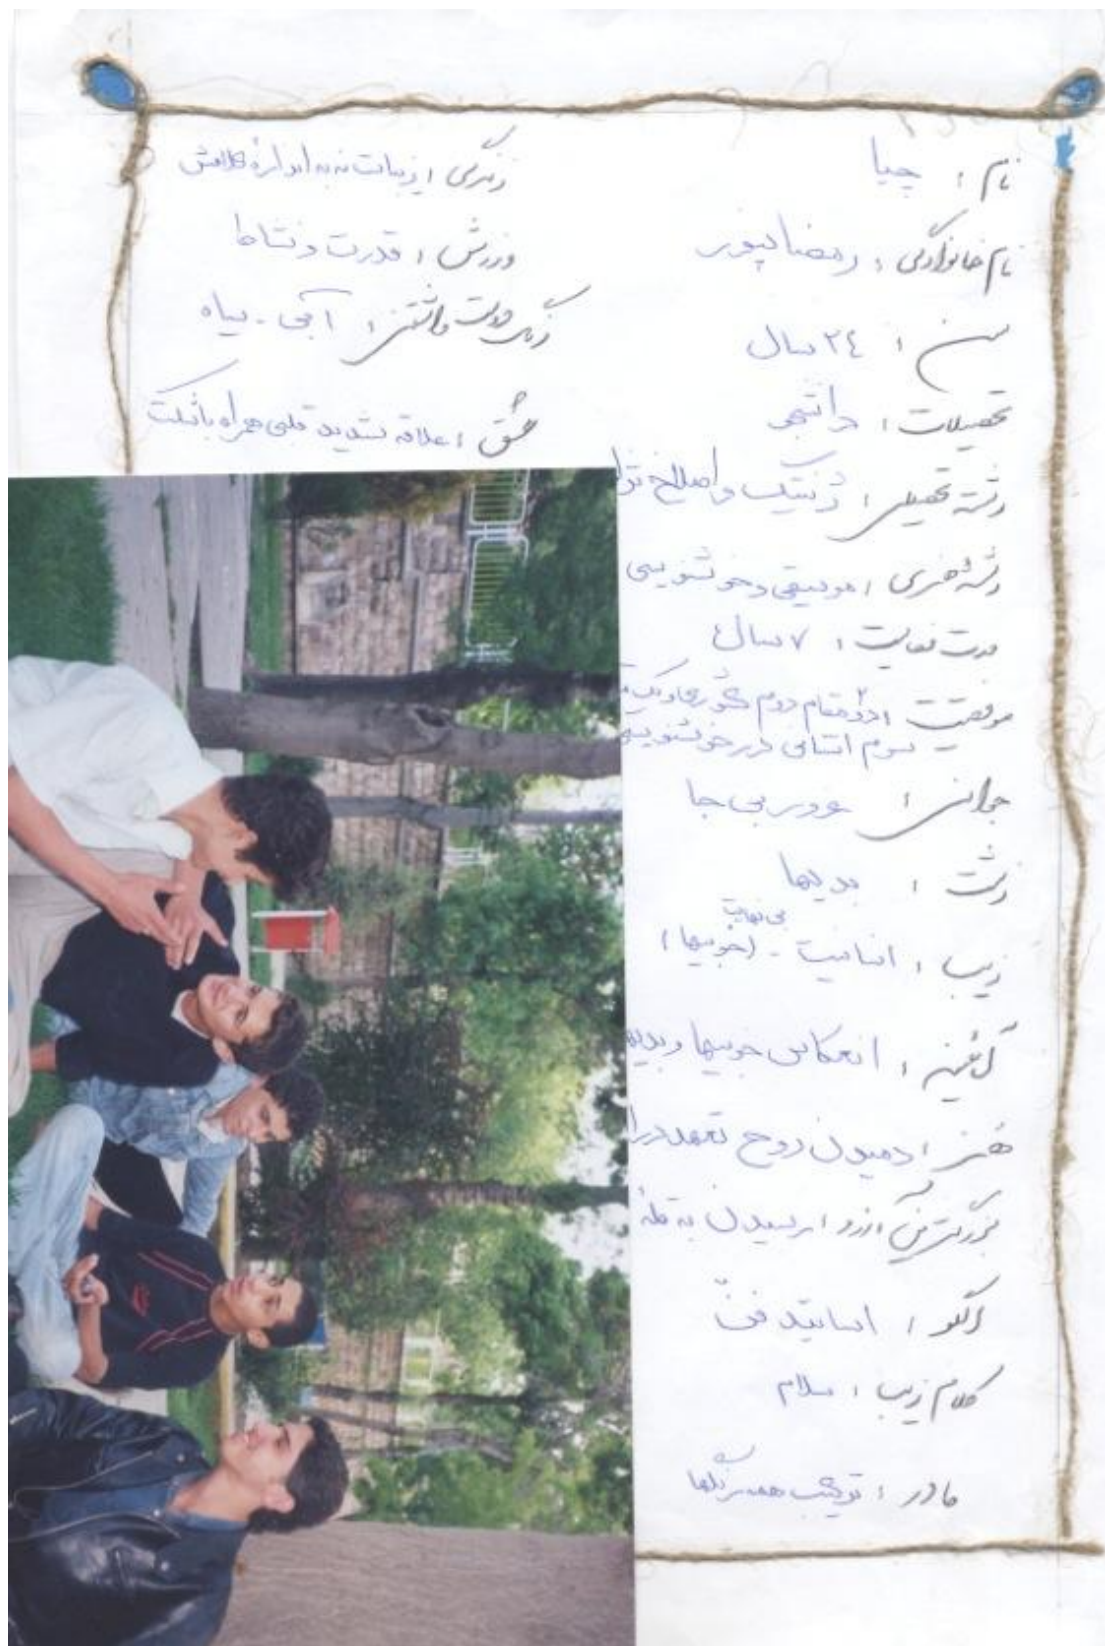 نام : چیا
نام خانوادگی : رمضانپور
سن : ٢٤ سال
تحصیلات : دانشجو
رشته تحصیلی : ژنتیک و اصلاح نژا
رشته هنری : موسیقی و خوشنویسی
مدت فعالیت : ٧ سال
موفقیت : دو مقام دوم کشوری و یک
سوم استانی در خوشنویسی
جوانی : غرور بی جا
زشت : بدیها
زیبا : انسانیت - (خوبیها) بی نهایت
آئینه : انعکاس خوبیها و بدیها
هنر : دمیدن روح تعهد در
بزرگترین آرزو : رسیدن به قله
الگو : اساتید فن
کلام زیبا : سلام
مادر : ترکیب همه رنگها
زندگی : زیباست نه به اندازه کلامش
ورزش : قدرت و نشاط
رنگ دوست داشتنی : آبی - سیاه
عشق : علاقه شدید قلبی همراه با شکست